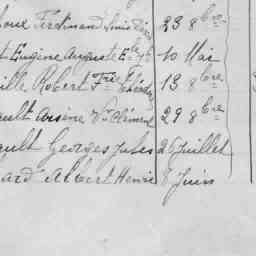 Ferdinand Louis 23 8bre
Eugène Auguste 10 Mai
ille Robert 13 8bre
ault Arsène Vor Clément 29 8bre
ault Georges Jules 26 Juillet
ard Albert Henri 8 Juin